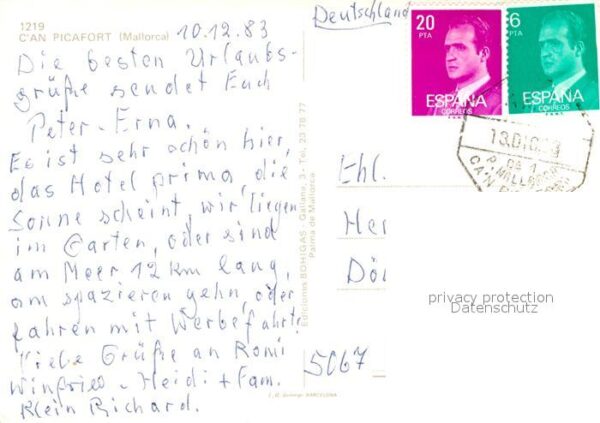 1219
C'AN PICAFORT (Mallorca)
10.12.83
Die besten Urlaubs-
grüße sendet Euch
Peter - Erna.
Es ist sehr schön hier,
das Hotel prima, die
Sonne scheint, wir liegen
im Garten, oder sind
am Meer 12 km lang,
am spazieren gehn, oder
fahren mit Werbefahrt!
Viele Grüße an Romi
Winfried - Heidi + Fam.
Klein Richard.
Ediciones BOHIGAS - Galiana, 3 - Tel. 23 78 77
Palma de Mallorca
BARCELONA
Deutschland
20
PTA
ESPAÑA
CORREOS
6
PTA
ESPAÑA
CORREOS
13.DIC.83
P. MALLORCA
CA'N
Ehl.
Her
Dör
5067
privacy protection
Datenschutz